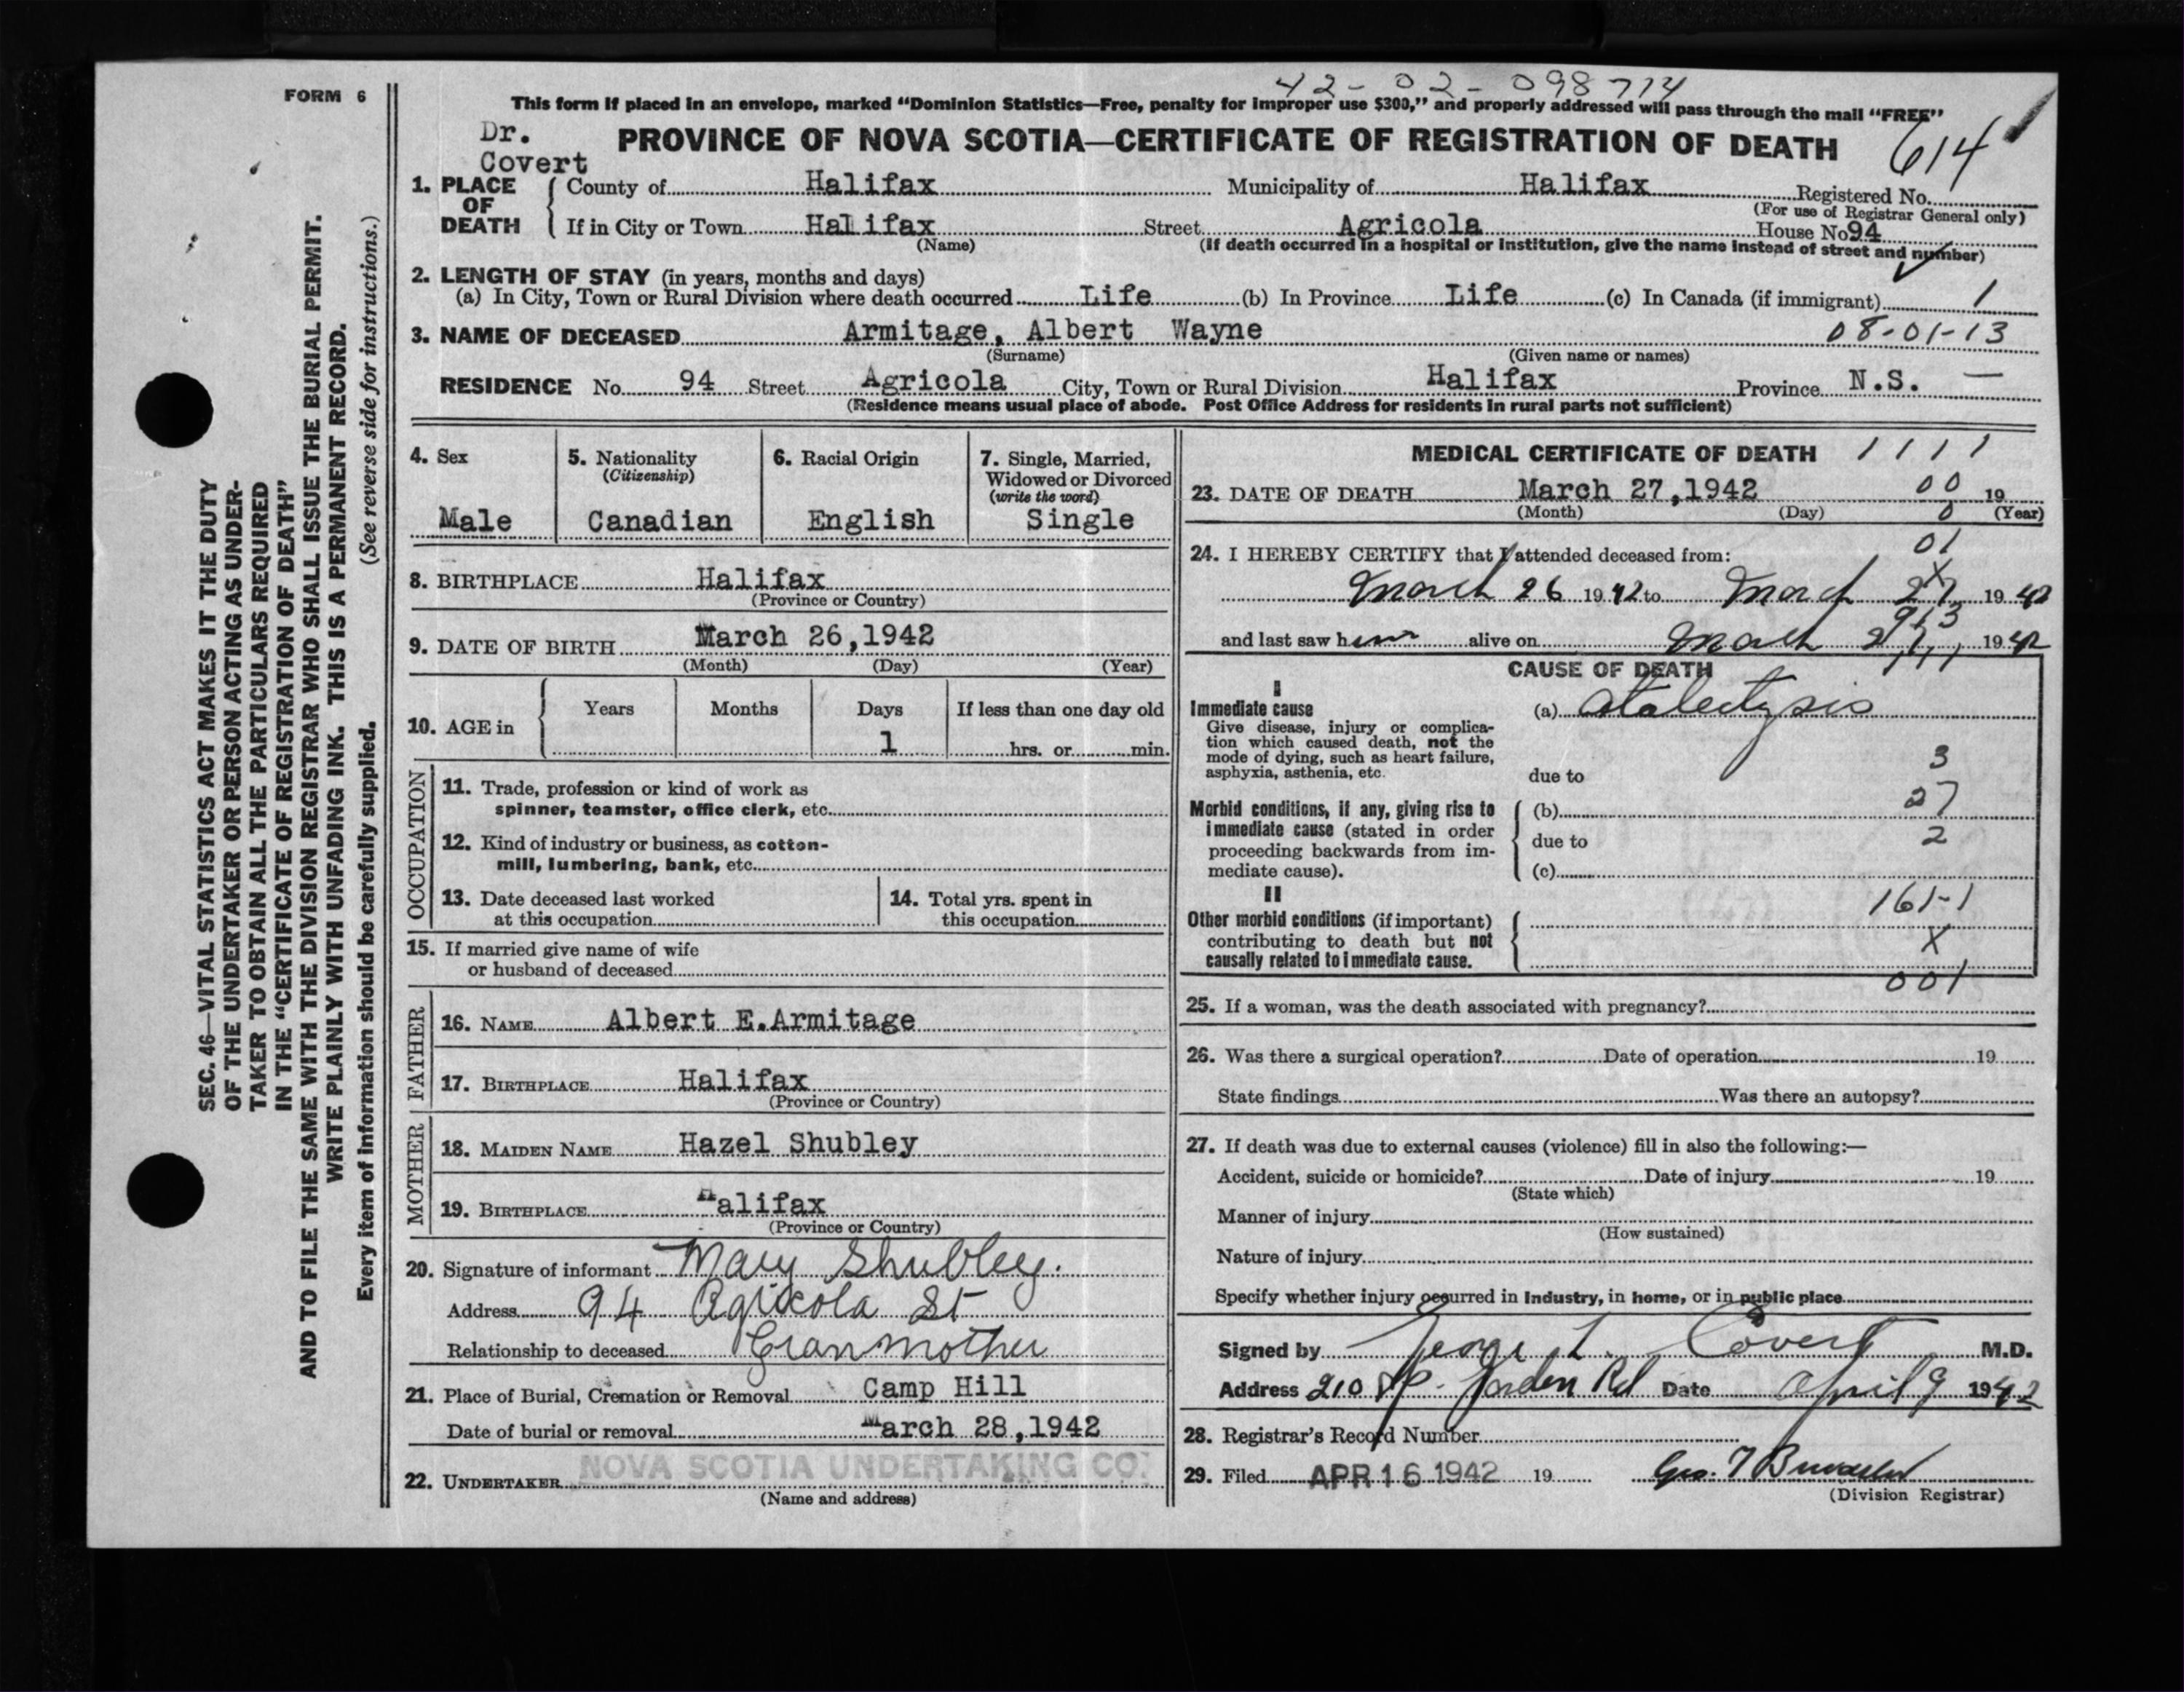 42-02-098714
FORM 6
This form if placed in an envelope, marked "Dominion Statistics—Free, penalty for improper use $300," and properly addressed will pass through the mail "FREE"
Dr.
Covert
PROVINCE OF NOVA SCOTIA—CERTIFICATE OF REGISTRATION OF DEATH
614
1. PLACE OF DEATH
County of Halifax Municipality of Halifax Registered No.
(For use of Registrar General only)
If in City or Town Halifax Street Agricola House No 94
(Name) (If death occurred in a hospital or institution, give the name instead of street and number)
2. LENGTH OF STAY (in years, months and days)
(a) In City, Town or Rural Division where death occurred Life (b) In Province Life (c) In Canada (if immigrant) 1
3. NAME OF DECEASED Armitage, Albert Wayne 08-01-13
(Surname) (Given name or names)
RESIDENCE No. 94 Street Agricola City, Town or Rural Division Halifax Province N.S. —
(Residence means usual place of abode. Post Office Address for residents in rural parts not sufficient)
4. Sex
Male
5. Nationality
(Citizenship)
Canadian
6. Racial Origin
English
7. Single, Married,
Widowed or Divorced
(write the word)
Single
8. BIRTHPLACE Halifax
(Province or Country)
9. DATE OF BIRTH March 26,1942
(Month) (Day) (Year)
10. AGE in
Years Months Days If less than one day old
1 hrs. or min.
OCCUPATION
11. Trade, profession or kind of work as
spinner, teamster, office clerk, etc.
12. Kind of industry or business, as cotton-
mill, lumbering, bank, etc.
13. Date deceased last worked
at this occupation
14. Total yrs. spent in
this occupation
15. If married give name of wife
or husband of deceased
FATHER
16. NAME Albert E.Armitage
17. BIRTHPLACE Halifax
(Province or Country)
MOTHER
18. MAIDEN NAME Hazel Shubley
19. BIRTHPLACE Halifax
(Province or Country)
20. Signature of informant Mary Shubley.
Address 94 Agricola St
Relationship to deceased Granmother
21. Place of Burial, Cremation or Removal Camp Hill
Date of burial or removal March 28,1942
22. UNDERTAKER NOVA SCOTIA UNDERTAKING CO.
(Name and address)
MEDICAL CERTIFICATE OF DEATH 1111
23. DATE OF DEATH March 27,1942 00 19
(Month) (Day) 0 (Year)
24. I HEREBY CERTIFY that I attended deceased from: 01
March 26 1942 to March 27 1942
X
913
and last saw him alive on March 27, 1942
111
CAUSE OF DEATH
I
Immediate cause
Give disease, injury or complica-
tion which caused death, not the
mode of dying, such as heart failure,
asphyxia, asthenia, etc.
(a) Atalectysis
3
due to
Morbid conditions, if any, giving rise to
immediate cause (stated in order
proceeding backwards from im-
mediate cause).
(b) 27
due to 2
(c)
II
161-1
Other morbid conditions (if important)
contributing to death but not
causally related to immediate cause.
X
001
25. If a woman, was the death associated with pregnancy?
26. Was there a surgical operation? Date of operation 19
State findings Was there an autopsy?
27. If death was due to external causes (violence) fill in also the following:—
Accident, suicide or homicide? Date of injury 19
(State which)
Manner of injury
(How sustained)
Nature of injury
Specify whether injury occurred in industry, in home, or in public place
Signed by George L. Covert M.D.
Address 210 Sp. Garden Rd Date April 9 1942
28. Registrar's Record Number
29. Filed APR 16 1942 19 Geo. T
(Division Registrar)
SEC. 46—VITAL STATISTICS ACT MAKES IT THE DUTY
OF THE UNDERTAKER OR PERSON ACTING AS UNDER-
TAKER TO OBTAIN ALL THE PARTICULARS REQUIRED
IN THE "CERTIFICATE OF REGISTRATION OF DEATH"
AND TO FILE THE SAME WITH THE DIVISION REGISTRAR WHO SHALL ISSUE THE BURIAL PERMIT.
WRITE PLAINLY WITH UNFADING INK. THIS IS A PERMANENT RECORD.
Every item of information should be carefully supplied. (See reverse side for instructions.)